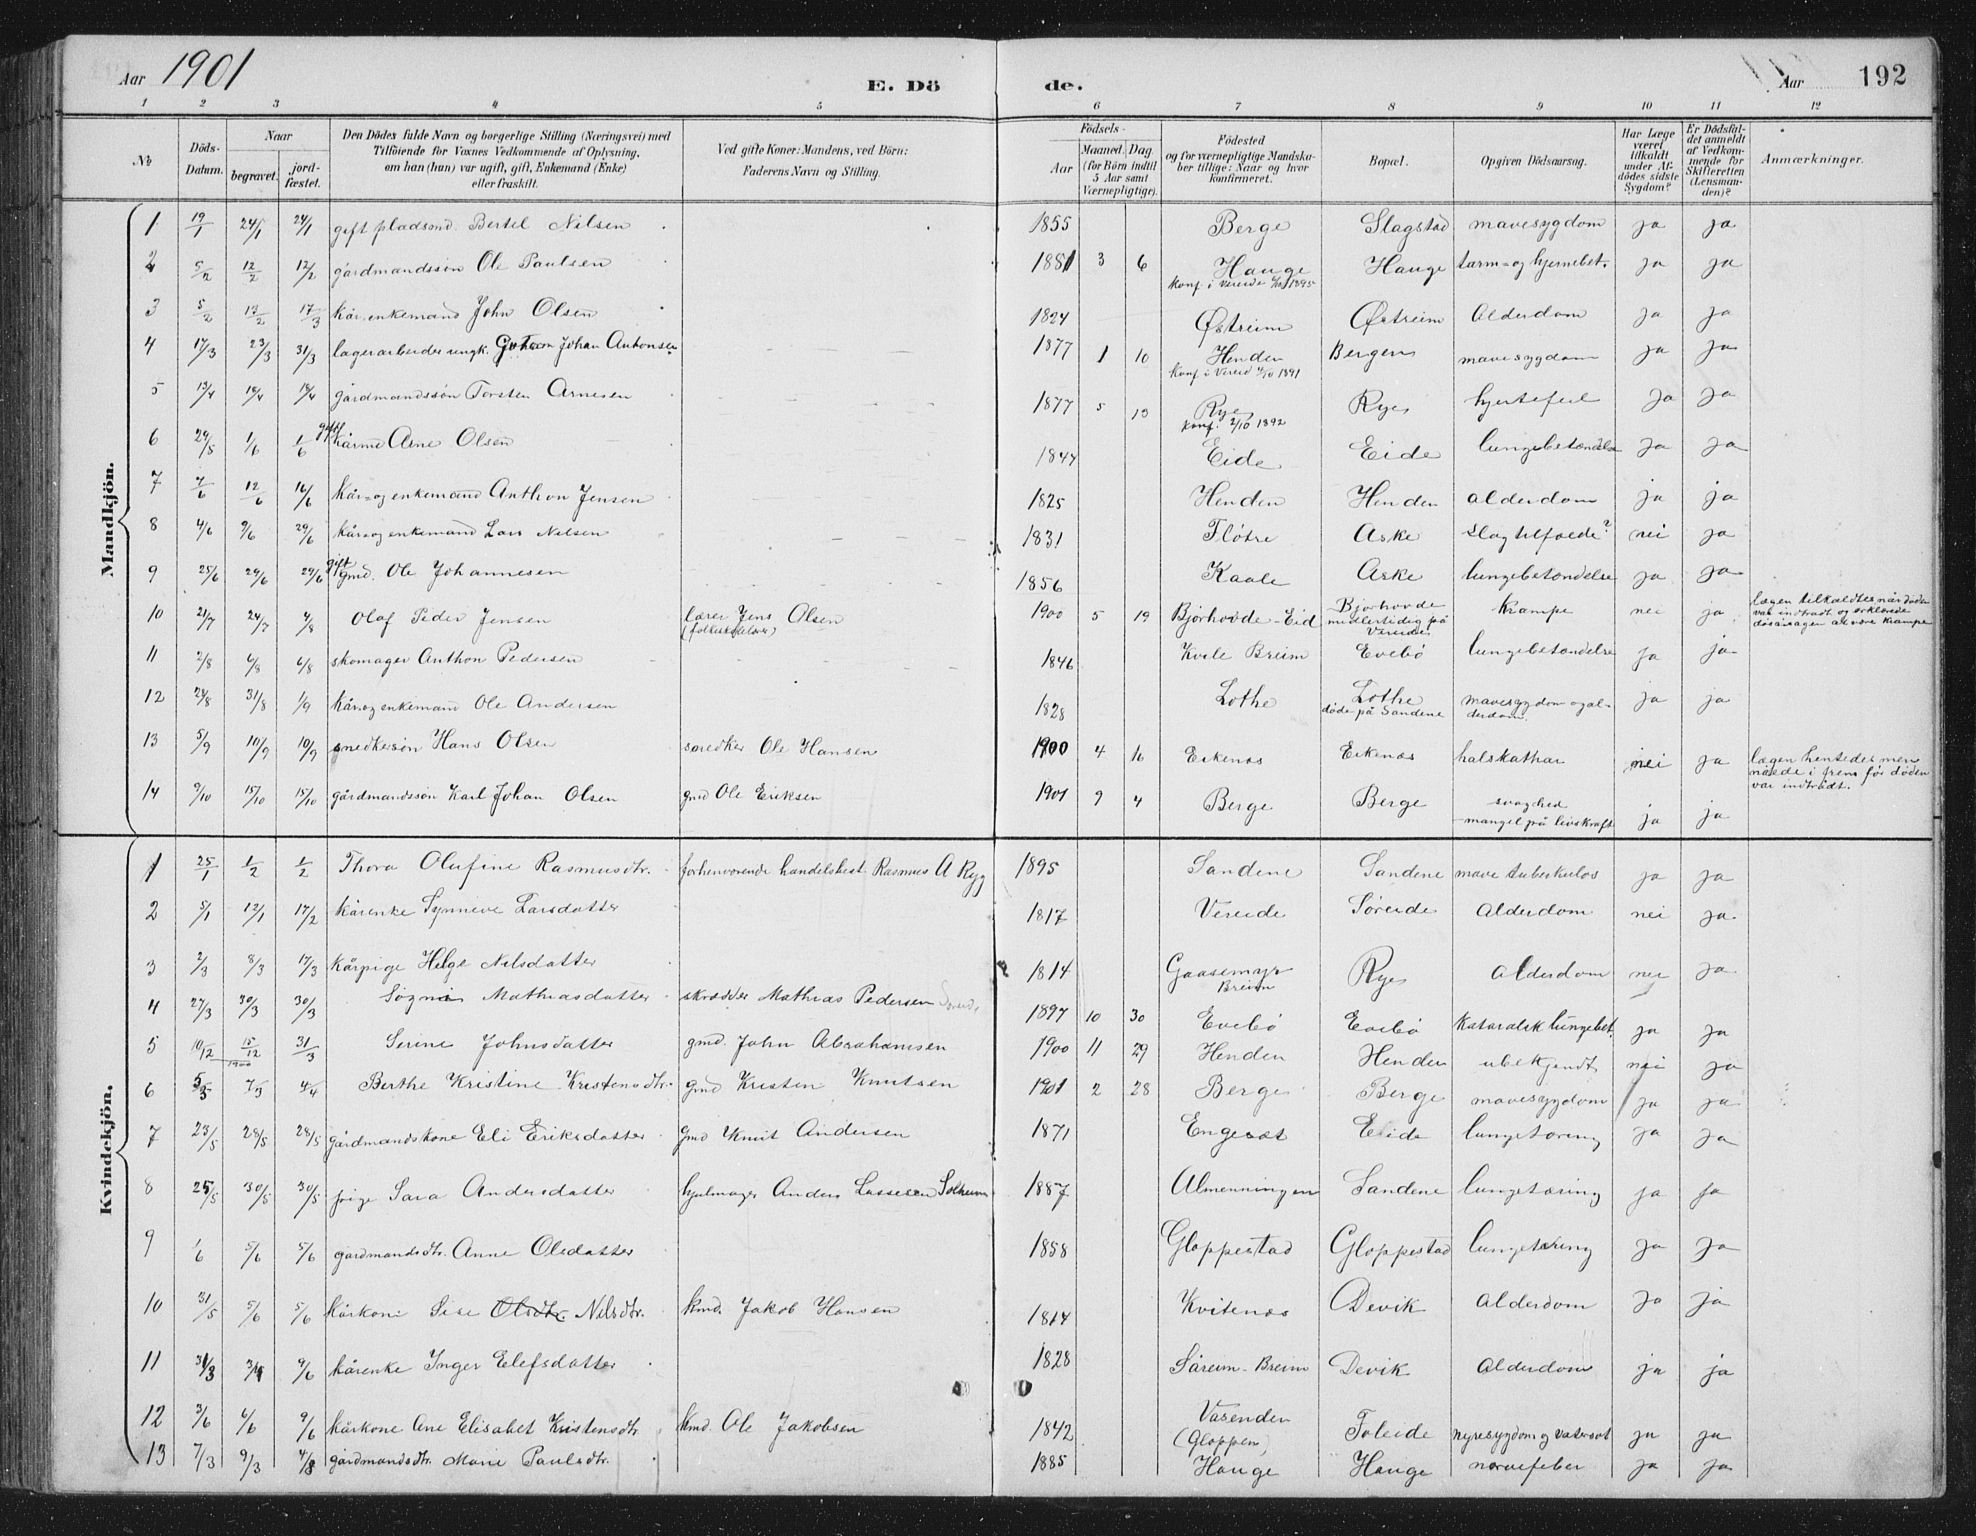 Aar 1901 E. Dö de. Aar 192
1 2 3 4 5 6 7 8 9 10 11 12
No
Döds-Datum.
Naar
begravet.
jord-fæstet.
Den Dödes fulde Navn og borgerlige Stilling (Næringsvei) med
Tilföiende for Voxnes Vedkommende af Oplysning,
om han (hun) var ugift, gift, Enkemand (Enke)
eller fraskilt.
Ved gifte Koner: Mandens, ved Börn:
Faderens Navn og Stilling.
Födsels-
Aar
Maaned. Dag.
(for Börn indtil
5 Aar samt
Værnepligtige).
Födested
og for værnepligtige Mandska-
ber tillige: Naar og hvor
konfirmeret.
Bopæl.
Opgiven Dödsaarsag.
Har Læge
været
tilkaldt
under Af-
dödes sidste
Sygdom?
Er Dödsfal-
det anmeldt
af Vedkom-
mende for
Skifteretten
(Lensman-
den)?
Anmærkninger.
Mandkjön.
1 19/1 24/1 24/1 gift pladsmd. Bertil Nilsen 1855 Berge Slagstad mavesygdom ja ja
2 5/2 12/2 12/2 gårdmandssön Ole Paulsen 1881 3 6 Hauge Hauge tarm- og hjernebet. ja ja
konf. i Vereide 1895
3 5/2 17/2 17/3 kår-enkemand John Olsen 1824 Østreim Østreim Alderdom ja ja
4 17/3 23/3 31/3 lagerarbeider ungk. Johan Antonsen 1877 1 10 Henden Bergen mavesygdom ja ja
konf. i Vereid 1891
5 13/4 18/4 18/4 gårdmandssön Torsten Arnesen 1877 5 13 Ryes Ryes hjertefeil ja ja
konf. 2/10 1892
6 24/5 1/6 1/6 gift kårmd Arne Olsen 1844 Eide Eide lungebetændelse ja ja
7 7/6 12/6 16/6 kår- og enkemand Anthon Jensen 1825 Henden Henden alderdom ja ja
8 4/6 9/6 29/6 kår- og enkemand Lars Nilsen 1831 Flötre Aske Slagtilfælde? nei ja
9 25/6 29/6 29/6 gift gmd. Ole Johannesen 1856 Kaale Aske lungebetændelse ja ja
10 21/7 24/7 4/8 Olaf Peder Jensen lærer Jens Olsen 1900 5 19 Bjørhovde-Eid Bjørhovde krampe nei ja lægen tilkaldtes når döden
midlertidig på var indtradt og erklærede
Vereide dösårsagen at være krampe
11 2/8 6/8 6/8 skomager Anthon Pedersen 1846 Kvile Breim Evebö lungebetændelse ja ja
12 28/8 31/8 1/9 kår- og enkemand Ole Andersen 1828 Lothe Lothe mavesygdom og al- ja ja
döde på Sandene derdom.
13 5/9 10/9 10/9 snedkersön Hans Olsen snedker Ole Hansen 1900 4 16 Eikenæs Eikenæs halskathar nei ja lægen hentedes men
nåede i frem för döden
var indtrådt.
14 9/10 15/10 15/10 gårdmandssön Karl Johan Olsen gmd Ole Eriksen 1901 9 4 Berge Berge svaghed
mangel på livskraft ja ja
Kvindekjön.
1 25/1 1/2 1/2 Thora Olufine Rasmusdtr. forhenværende handelsbest. Rasmus A Ryg 1895 Sandene Sandene mave tuberkulos ja ja
2 5/1 12/1 17/2 kårenke Synneve Larsdatter 1817 Vereide Söreide Alderdom nei ja
3 2/3 8/3 17/3 kårpige Helge Nilsdatter 1814 Gaasemyr Ryes Alderdom nei ja
Breim
4 27/3 30/3 30/3 Søgni Mathiasdatter skrædder Mathias Pedersen 1897 10 30 Evebö Evebö Kataralsk lungebet. ja ja
5 10/12 15/12 31/3 Serine Johnsdatter gmd. John Abrahamsen 1900 11 29 Henden Henden ubekjendt nei ja
1900
6 5/3 7/3 4/4 Berthe Kristine Kristensdtr. gmd Kristen Knutsen 1901 2 28 Berge Berge mavesygdom ja ja
7 23/5 28/5 28/5 gårdmandskone Eli Eriksdatter gmd Knut Andersen 1871 Engeset Eide lungetæring ja ja
8 25/5 30/5 30/5 pige Sara Andersdatter hjulmager Anders Lassesen Solheim 1887 Almenningen Sandene lungetæring ja ja
9 1/6 5/6 5/6 gårdmandsdtr. Anne Olsdatter 1858 Gloppestad Gloppestad lungetæring ja ja
10 31/5 5/6 5/6 kårkone Sise Olsdtr. Nilsdtr. kmd. Jakob Hansen 1814 Kvitenæs Devik Alderdom ja ja
11 31/3 9/6 kårenke Inger Elefsdatter 1828 Såreim-Breim Devik Alderdom ja ja
12 3/6 6/6 9/6 kårkone Ane Elisabet Kristensdtr. kmd. Ole Jakobsen 1842 Vasenden Foleide nyresygdom og vatersot ja ja
(Gloppen)
13 7/3 9/3 4/8 gårdmandsdtr. Marie Paulsdtr. 1885 Hauge Hauge nervefeber ja ja